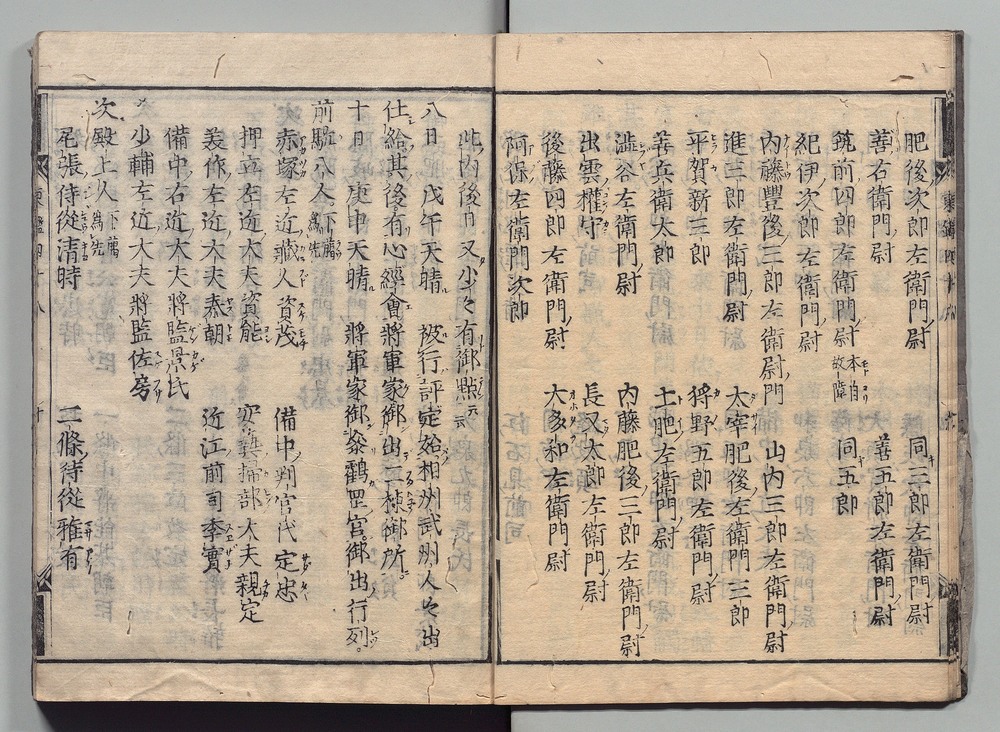 肥後次郎左衛門尉　同三郎左衛門尉
善右衛門尉　善五郎左衛門尉
筑前四郎左衛門尉　同五郎
紀伊次郎左衛門尉
内藤豊後三郎左衛尉門　山内三郎左衛門尉
進三郎左衛門尉　太宰肥後左衛門三郎
平賀新三郎　狩野五郎左衛門尉
善兵衛太郎　土肥左衛門尉
澁谷左衛門尉　内藤肥後三郎左衛門尉
出雲權守　長又太郎左衛門尉
後藤四郎左衛門尉　大多和左衛門尉
阿保左衛門次郎
此内後日又少々有御點云
八日　戊午天晴　被行評定始相州武州人々出
仕給其後有心經會將軍家御出二棟御所
十日　庚申天晴　將軍家御參鶴罡宮御出行列
前駈八人下﨟為先
赤塚左近藏人資茂　備中判官代定忠
押立左近大夫資能　掃部大夫親定
美作左近大夫泰朝　近江前司季實
備中右近大夫將監景氏
少輔左近大夫將監佐房
次殿上人下﨟為先
尾張侍從清時　二條侍從雅有
東鑑四十八　十